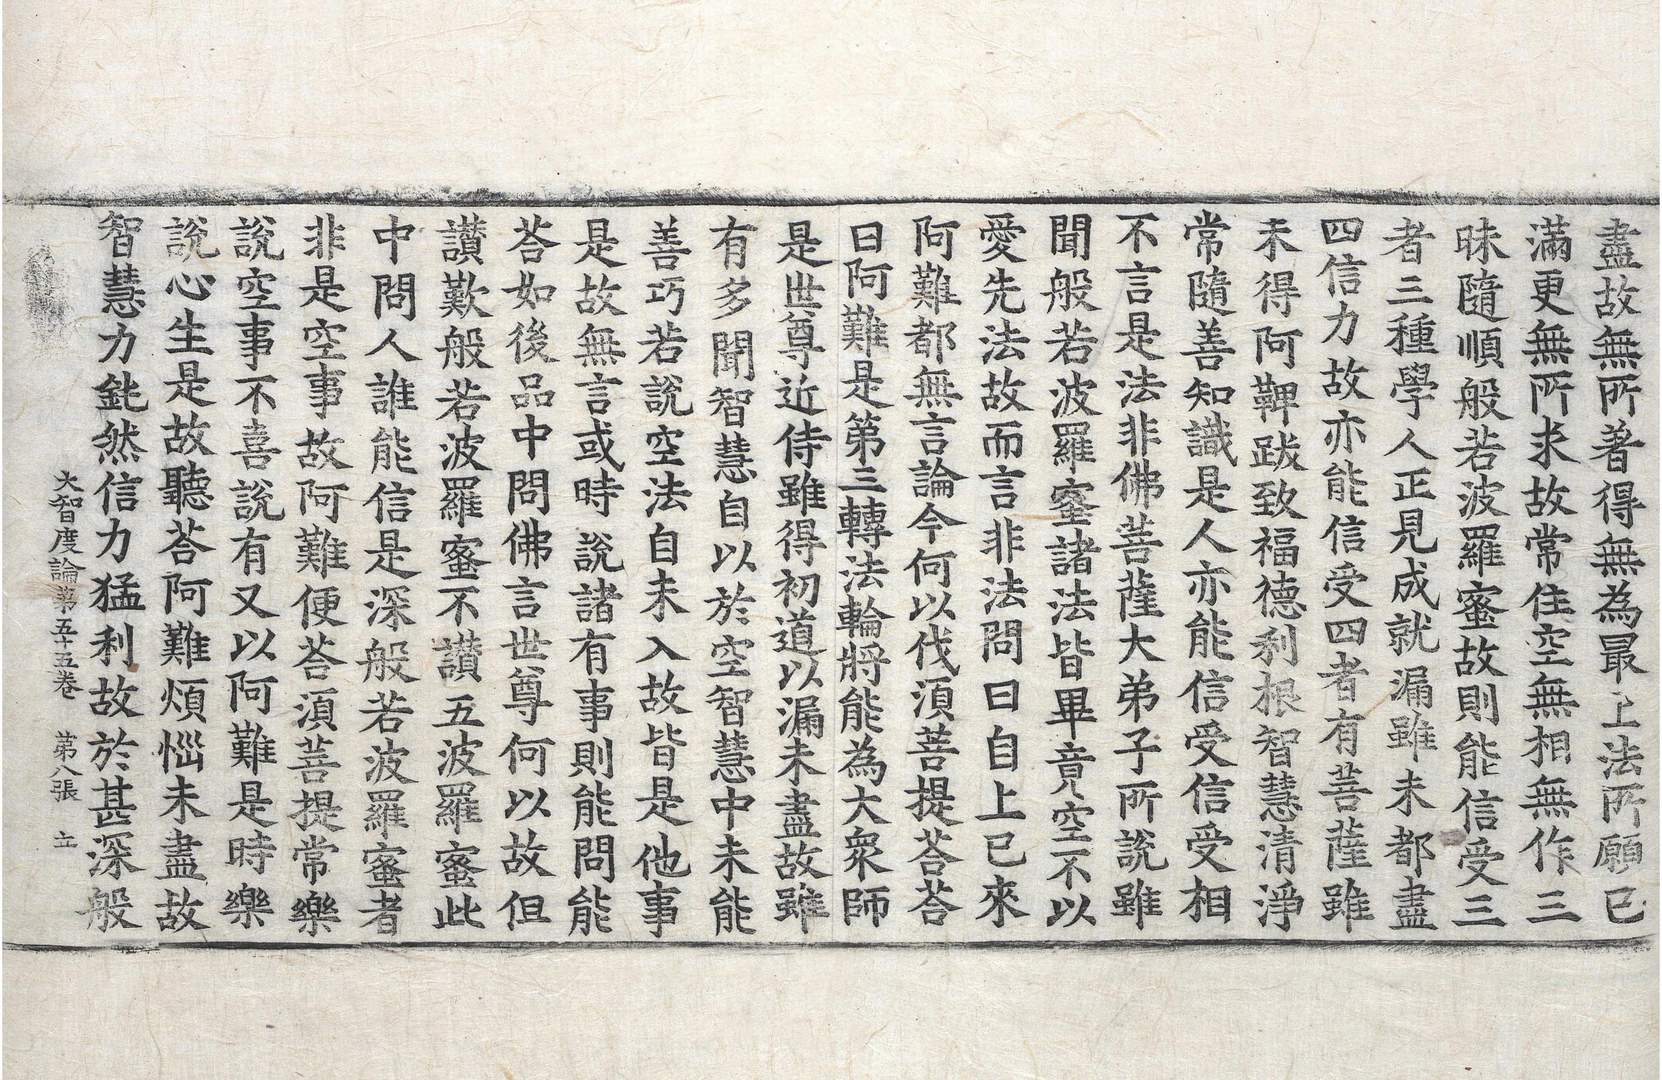 盡故無所著得無為最上法所願已
滿更無所求故常住空無相無作三
昧隨順般若波羅蜜故則能信受三
者三種學人正見成就漏雖未都盡
四信力故亦能信受四者有菩薩雖
未得阿鞞跋致福德利根智慧清淨
常隨善知識是人亦能信受信受相
不言是法非佛菩薩大弟子所說雖
聞般若波羅蜜諸法皆畢竟空不以
愛先法故而言非法問曰自上已來
阿難都無言論今何以伐湏菩提荅荅
曰阿難是第三轉法輪將能為大衆師
是世尊近侍雖得初道以漏未盡故雖
有多聞智慧自以於空智慧中未能
善巧若說空法自未入故皆是他事
是故無言或時說諸有事則能問能
荅如後品中問佛言世尊何以故但
讃歎般若波羅蜜不讃五波羅蜜此
中問人誰能信是深般若波羅蜜者
非是空事故阿難便荅湏菩提常樂
說空事不喜說有又以阿難是時樂
說心生是故聽荅阿難煩惱未盡故
智慧力鈍然信力猛利故於甚深般
大智度論第五十五卷 第八張 立